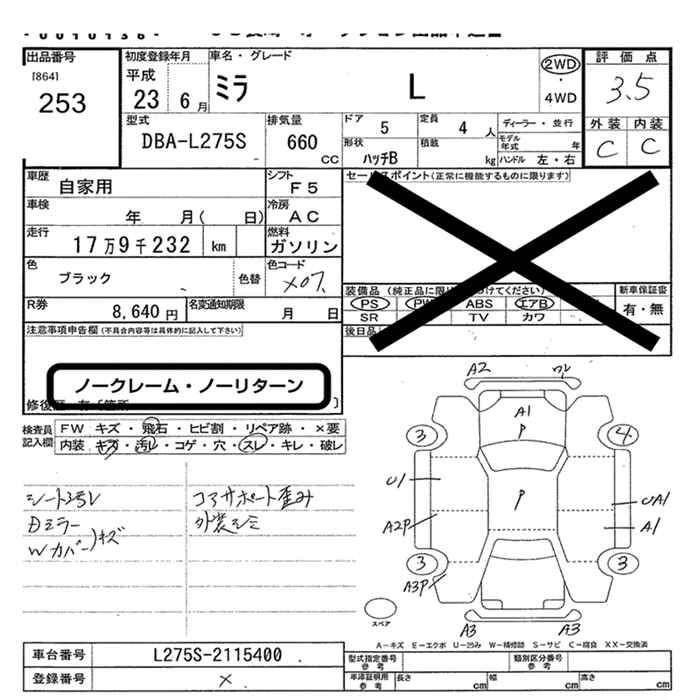 出品番号
[864]
253
初度登録年月
平成
23 6月
車名・グレード
ミラ L
2WD
・
4WD
評価点
3.5
外装 内装
C C
型式
DBA-L275S
排気量
660
cc
ドア 5
定員 4 人
ディーラー・並行
モデル年式 年
形状
ハッチB
積載 kg
ハンドル 左・右
車歴
自家用
シフト
F5
セールスポイント(正常に機能するものに限ります)
車検
年 月( 日)
冷房
AC
走行
17万9千232 km
燃料
ガソリン
色
ブラック
色替
色コード
X07
装備品 (純正品に限り
つけてください)
PS PW ABS エアB
SR TV カワ
新車保証書
有・無
R券
8,640 円
名変通知期限
月 日
後日品
注意事項申告欄(不具合内容等は具体的に記入して下さい)
ノークレーム・ノーリターン
検査員
記入欄
FW キズ・飛石・ヒビ割・リペア跡・×要
内装 キズ・汚レ・コゲ・穴・スレ・キレ・破レ
Dミラー
Wカバーキズ
コアサポート歪み
外装シミ
A2 ワレ
A1
P
3 4
U1
P
UA1
A2P
A1
3 3
A3P
スペア
A3 A3
A－キズ E－エクボ U－凹み W－補修跡 S－サビ C－腐食 XX－交換済
車台番号
L275S-2115400
型式指定番号
参考
類別区分番号
参考
登録番号
×
車添証明用
参考
長さ cm
幅 cm
高さ cm